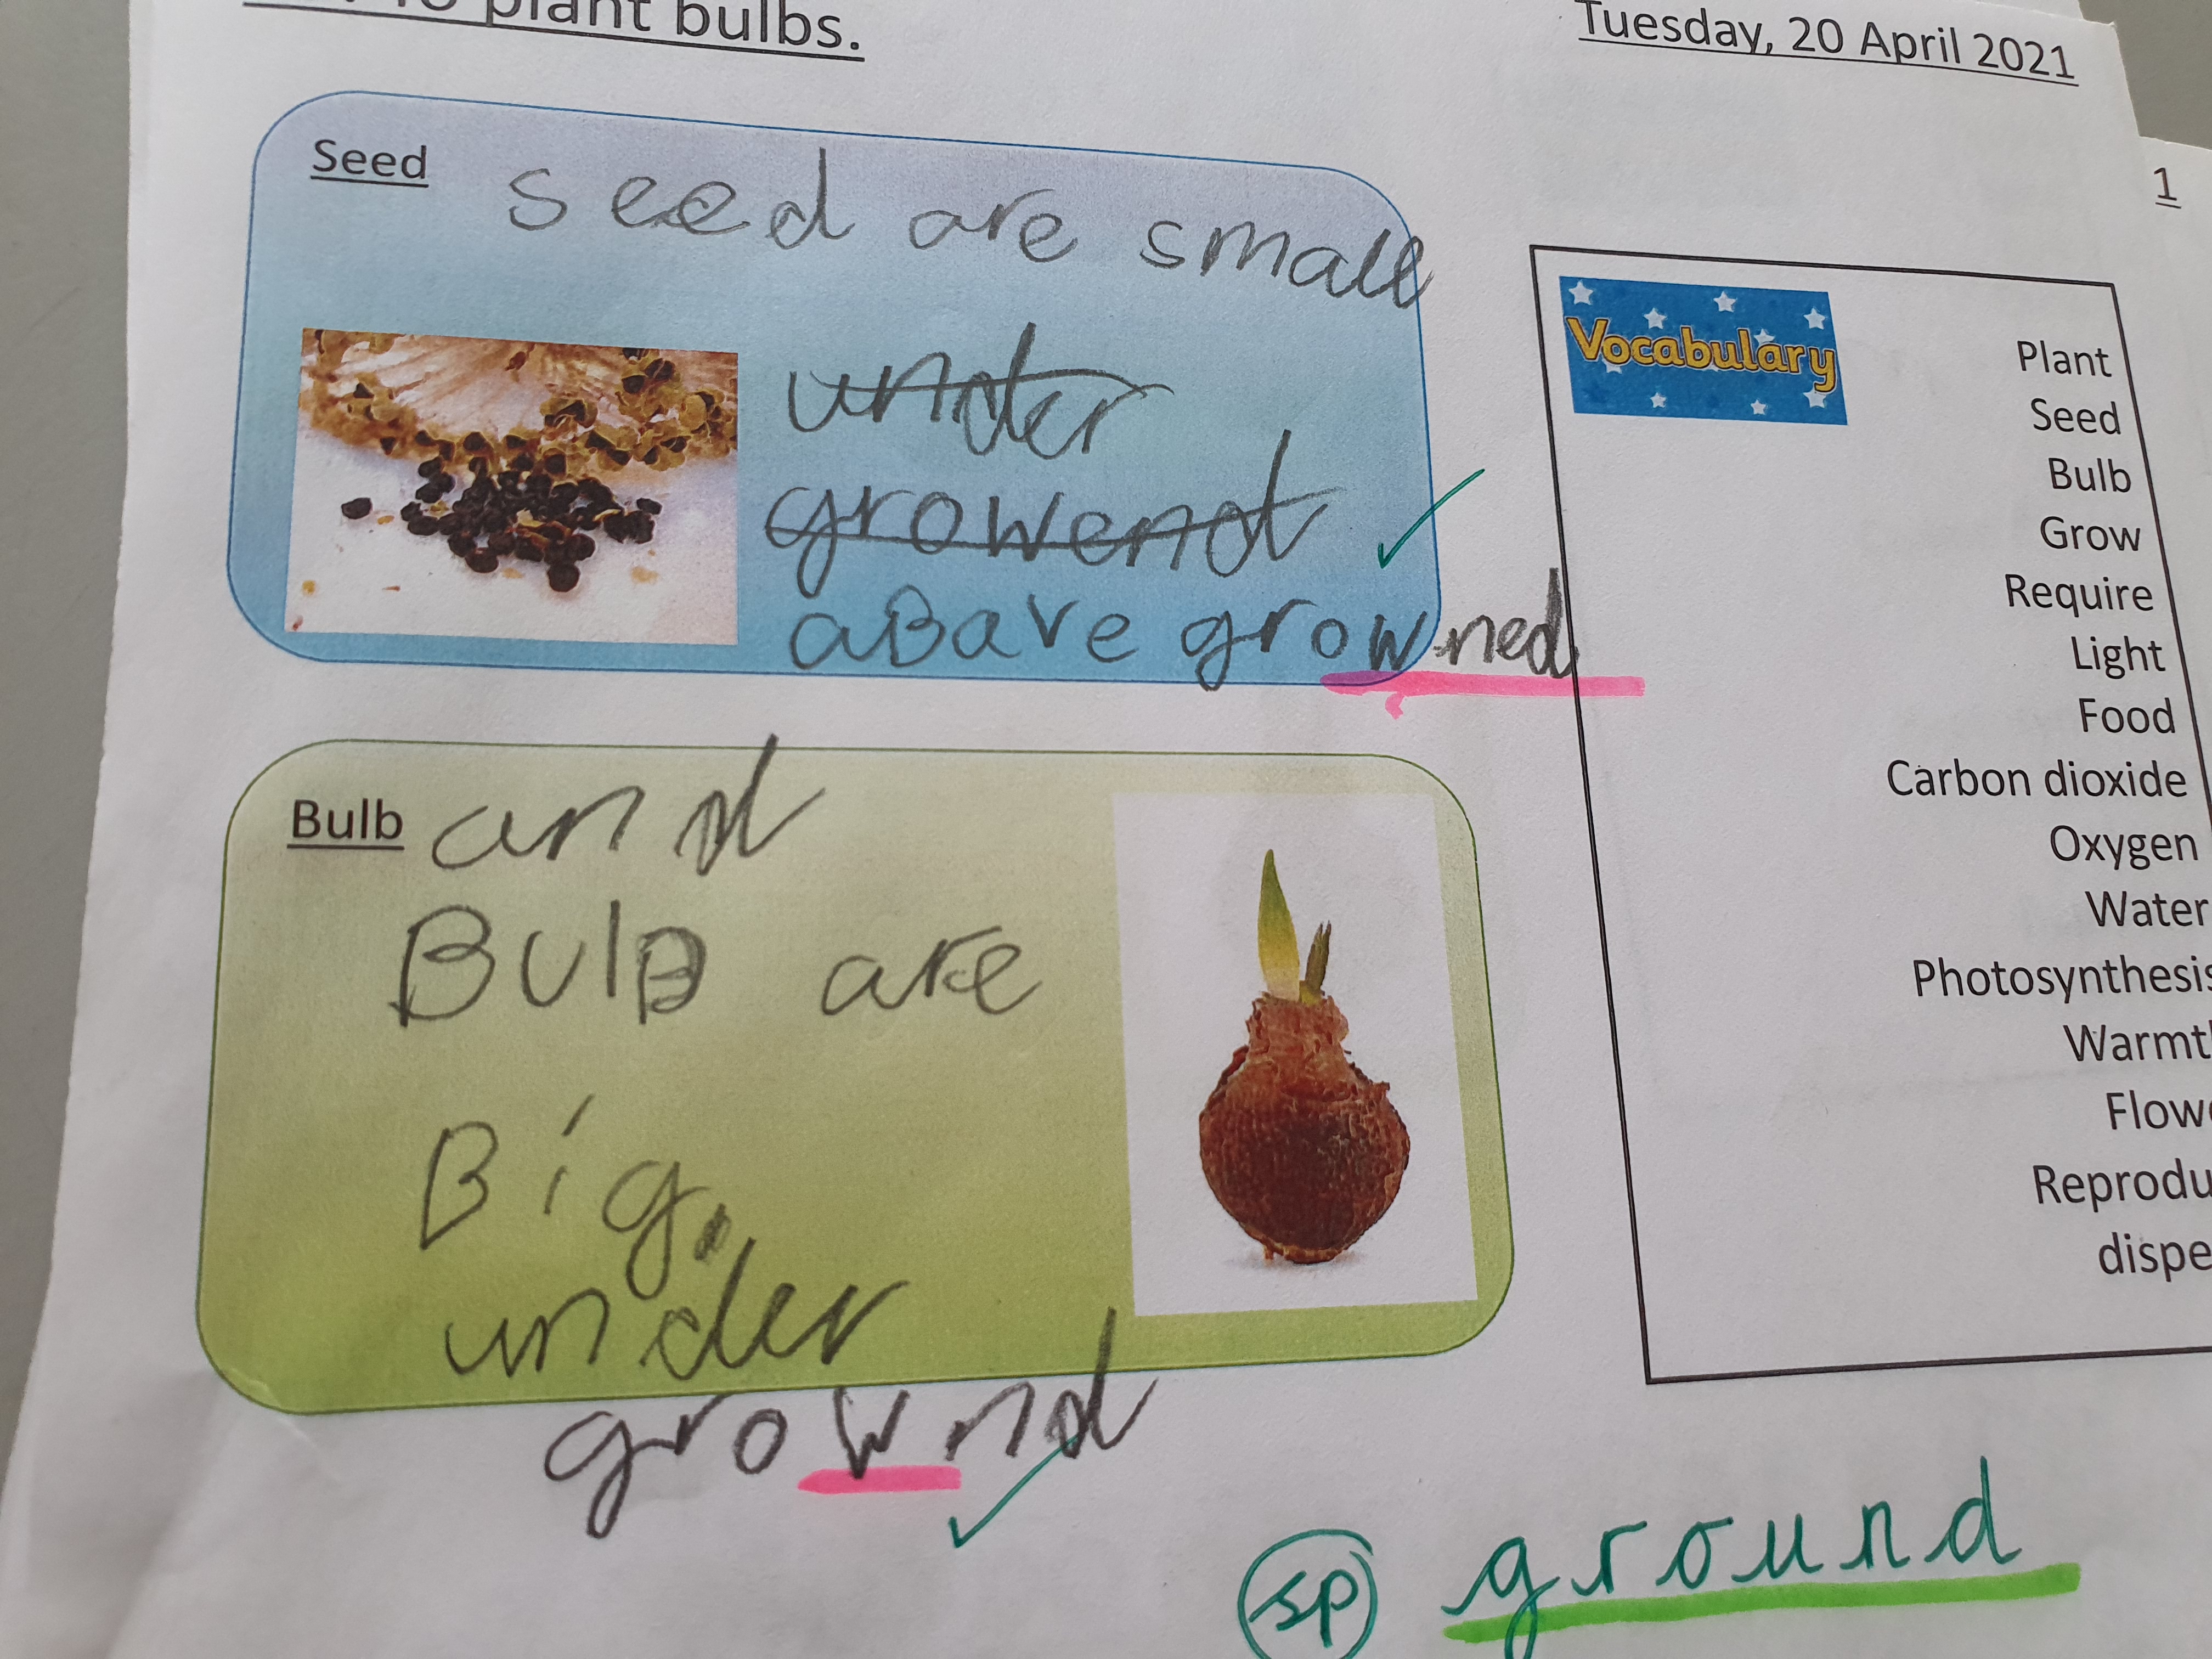 plant bulbs.
Tuesday, 20 April 2021
1
Seed
seed are small
under
growend
aBave growned
Bulb
and
BulB are
Big.
under
grownd
Vocabulary
Plant
Seed
Bulb
Grow
Require
Light
Food
Carbon dioxide
Oxygen
Water
Photosynthesis
Warmt
Flow
Reprodu
dispe
sp ground